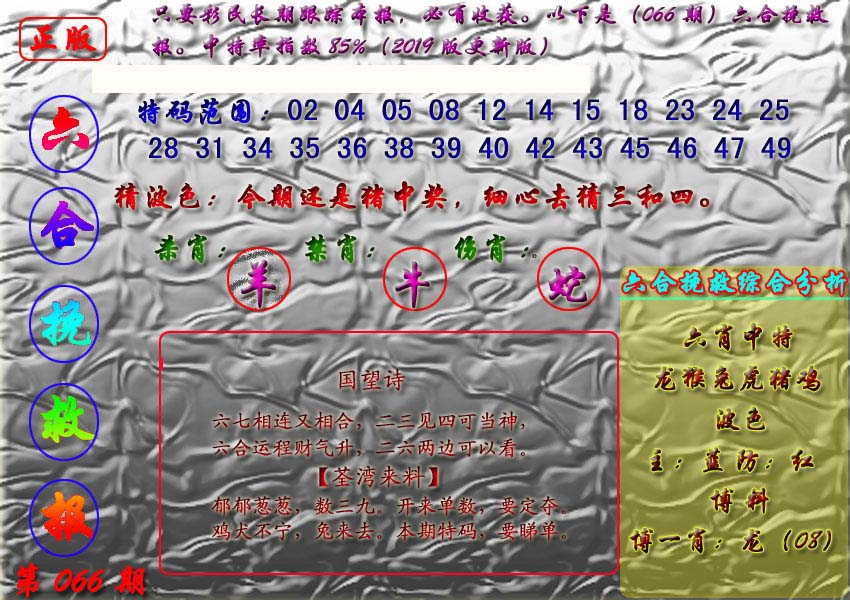 正版
只要彩民长期跟踪本报，必有收获。以下是（066期）六合挽救
报。中特率指数85%（2019版更新版）
六合挽救报
第066期
特码范围：02 04 05 08 12 14 15 18 23 24 25
28 31 34 35 36 38 39 40 42 43 45 46 47 49
猜波色：今期还是猪中奖，细心去猜三和四。
杀肖：羊 禁肖：牛 伤肖：蛇
国望诗
六七相连又相合，二三见四可当神，
六合运程财气升，二六两边可以看。
【荃湾来料】
郁郁葱葱，数三九。开来单数，要定夺。
鸡犬不宁，兔来去。本期特码，要睇单。
六合挽救综合分析
六肖中特
龙猴兔虎猪鸡
波色
主：蓝防：红
博料
博一肖：龙（08）